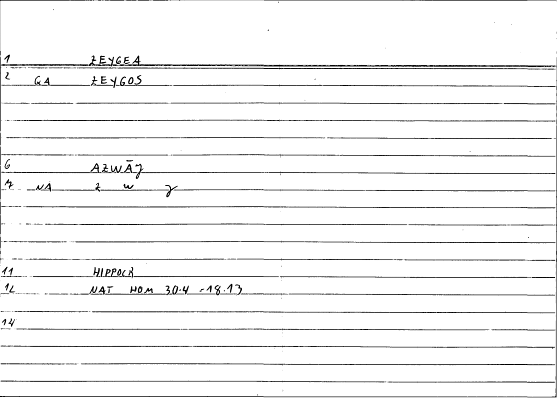 1 ZEYGEA
2 GA ZEYGOS
6 AZWĀJ
7 NA Z W J
11 HIPPOCR
12 NAT HOM 30.4 -18.13
14